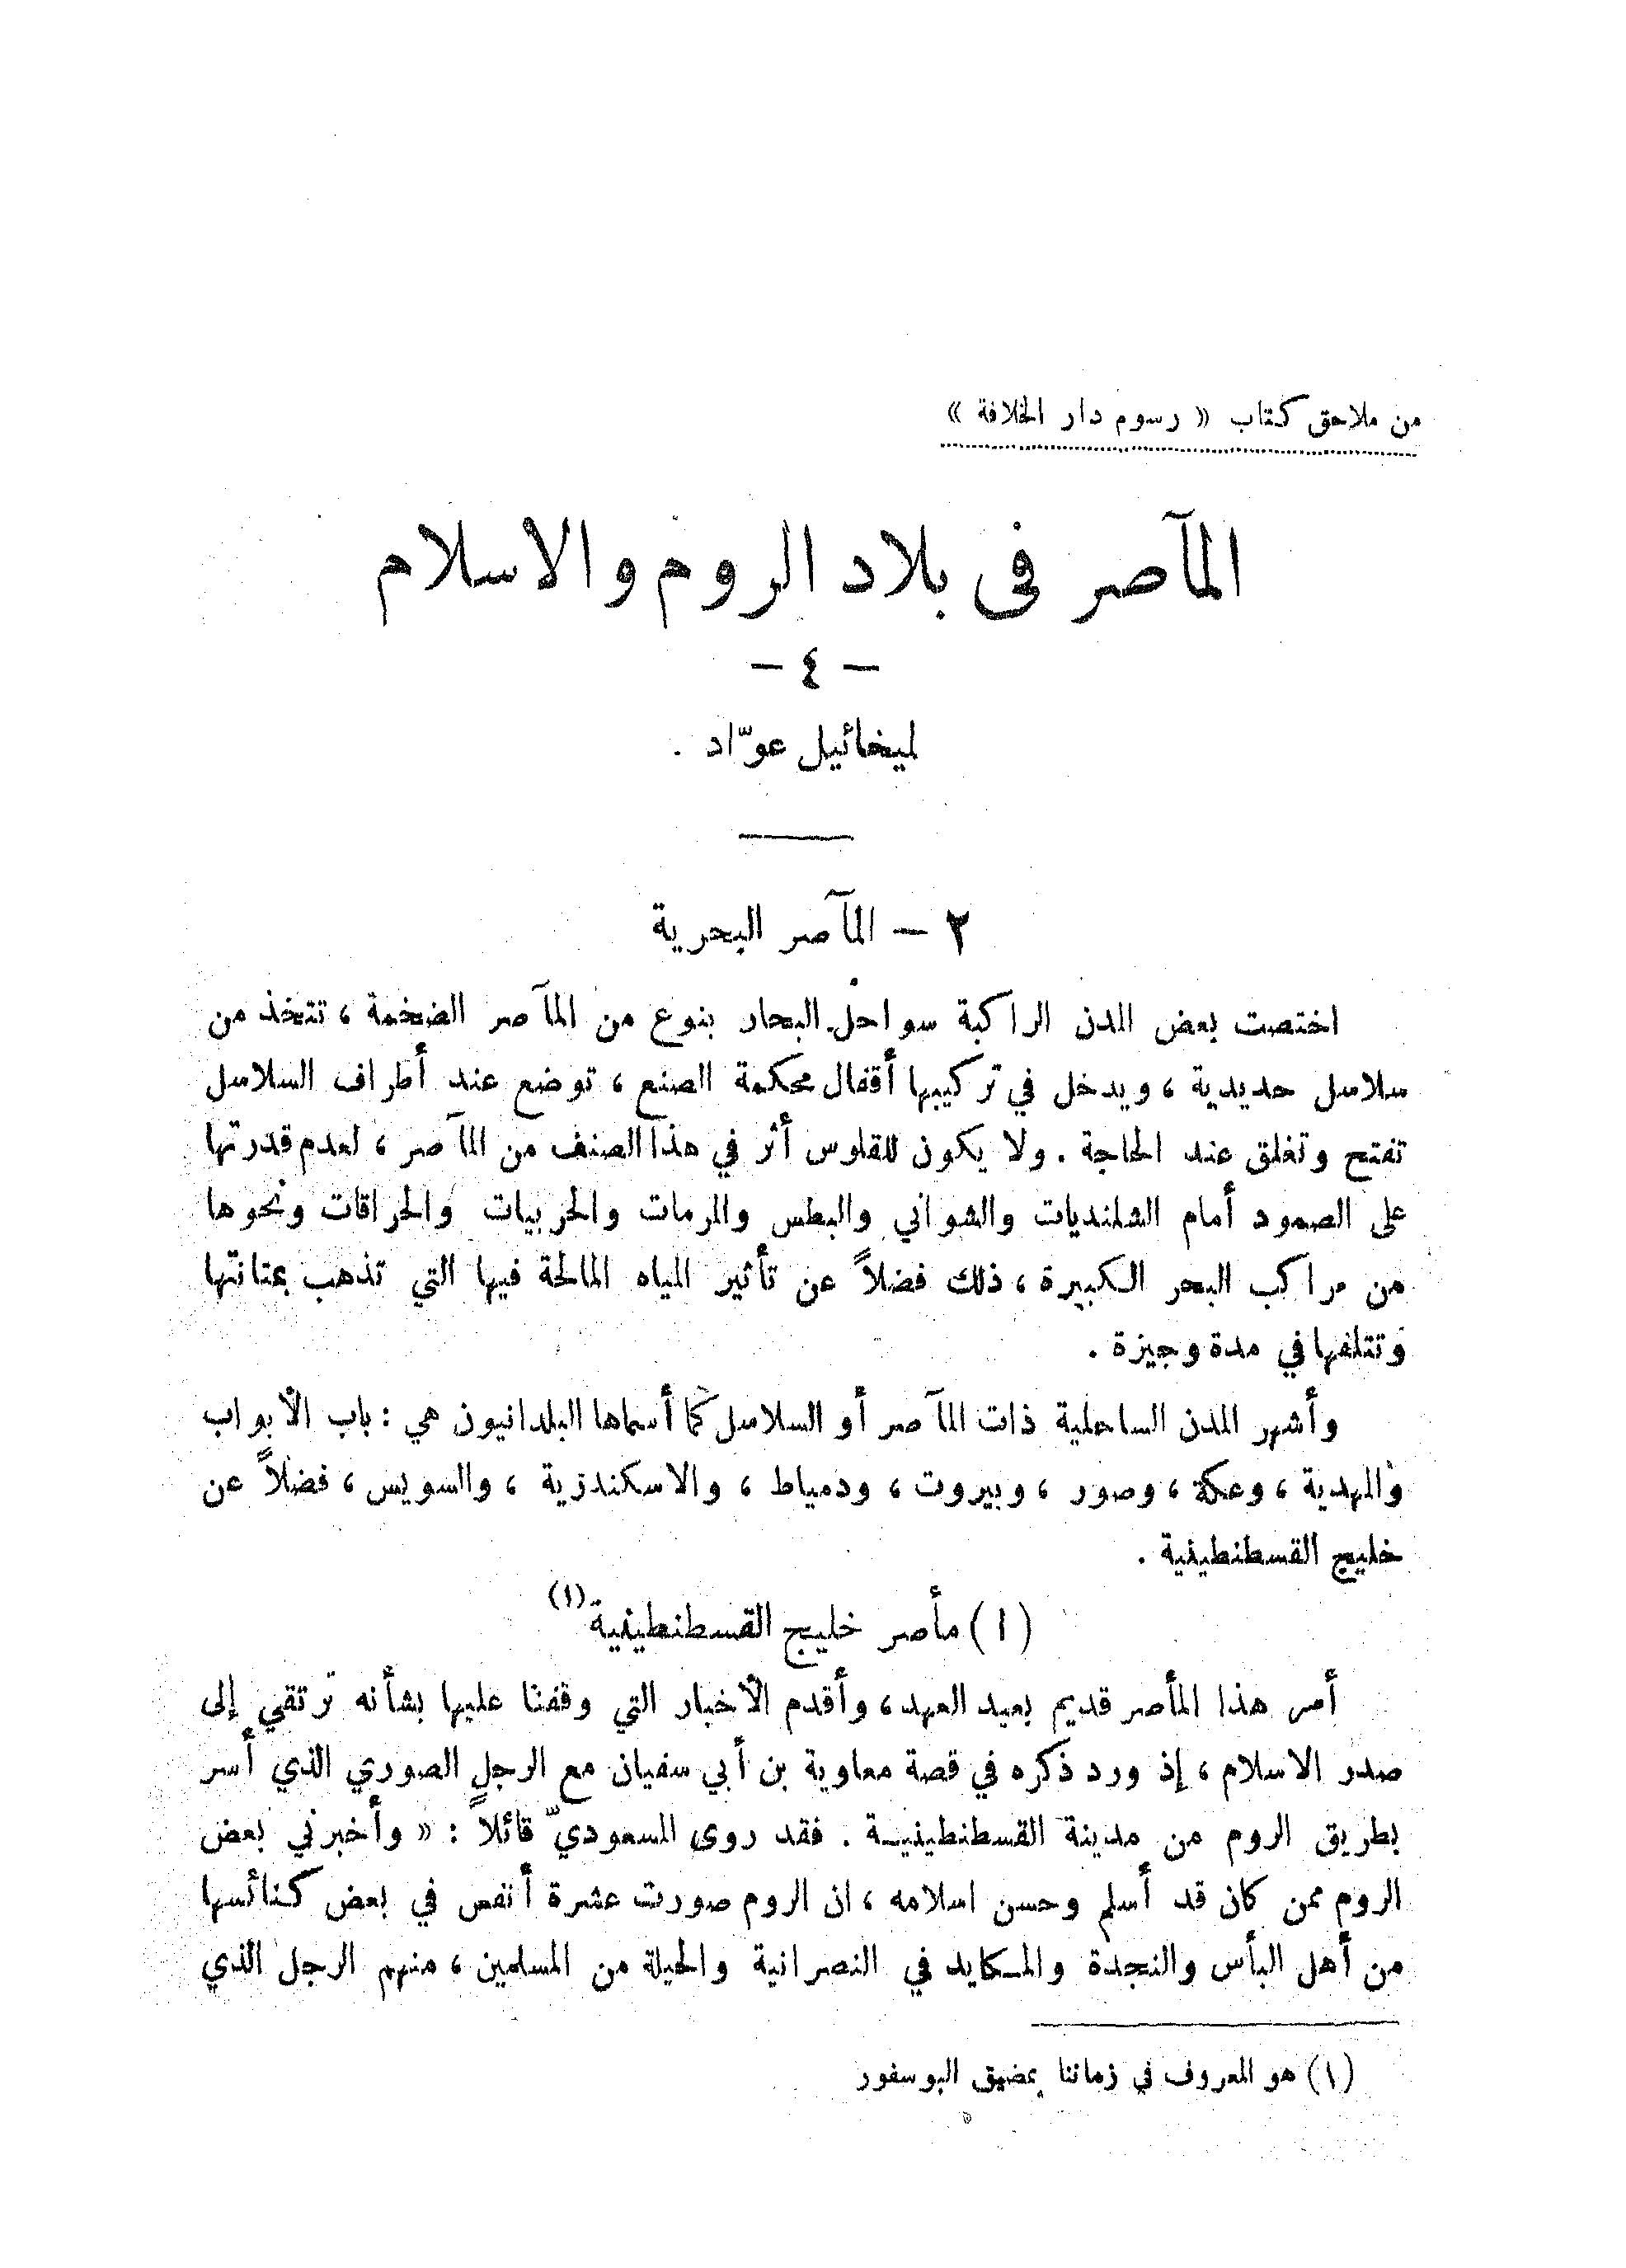 من ملاحق كتاب « رسوم دار الخلافة »
المآصر في بلاد الروم والاسلام
— ٤ —
لميخائيل عوّاد .
٢ — المآصر البحرية
اختصت بعض المدن الراكبة سواحل البحار بنوع من المآصر الضخمة ، تتخذ من
سلاسل حديدية ، ويدخل في تركيبها أقفال محكمة الصنع ، توضع عند أطراف السلاسل
تفتح وتغلق عند الحاجة . ولا يكون للقلوس أثر في هذا الصنف من المآصر ، لعدم قدرتها
على الصمود أمام الشلنديات والشواني والبطس والمرمات والحربيات والحراقات ونحوها
من مراكب البحر الكبيرة ، ذلك فضلاً عن تأثير المياه المالحة فيها التي تذهب بمتانتها
وتتلفها في مدة وجيزة .
وأشهر المدن الساحلية ذات المآصر أو السلاسل كما أسماها البلدانيون هي : باب الأبواب
والمهدية ، وعكة ، وصور ، وبيروت ، ودمياط ، والاسكندرية ، والسويس ، فضلاً عن
خليج القسطنطينية .
( ا ) مأصر خليج القسطنطينية (١)
أمر هذا المأصر قديم بعيد العهد ، وأقدم الأخبار التي وقفنا عليها بشأنه ترتقي إلى
صدر الاسلام ، إذ ورد ذكره في قصة معاوية بن أبي سفيان مع الرجل الصوري الذي أسر
بطريق الروم من مدينة القسطنطينيـة . فقد روى المسعوديّ قائلاً : « وأخبرني بعض
الروم ممن كان قد أسلم وحسن اسلامه ، ان الروم صورت عشرة أنفس في بعض كنائسها
من أهل البأس والنجدة والمـكايد في النصرانية والحيلة من المسلمين ، منهم الرجل الذي
(١) هو المعروف في زماننا بمضيق البوسفور